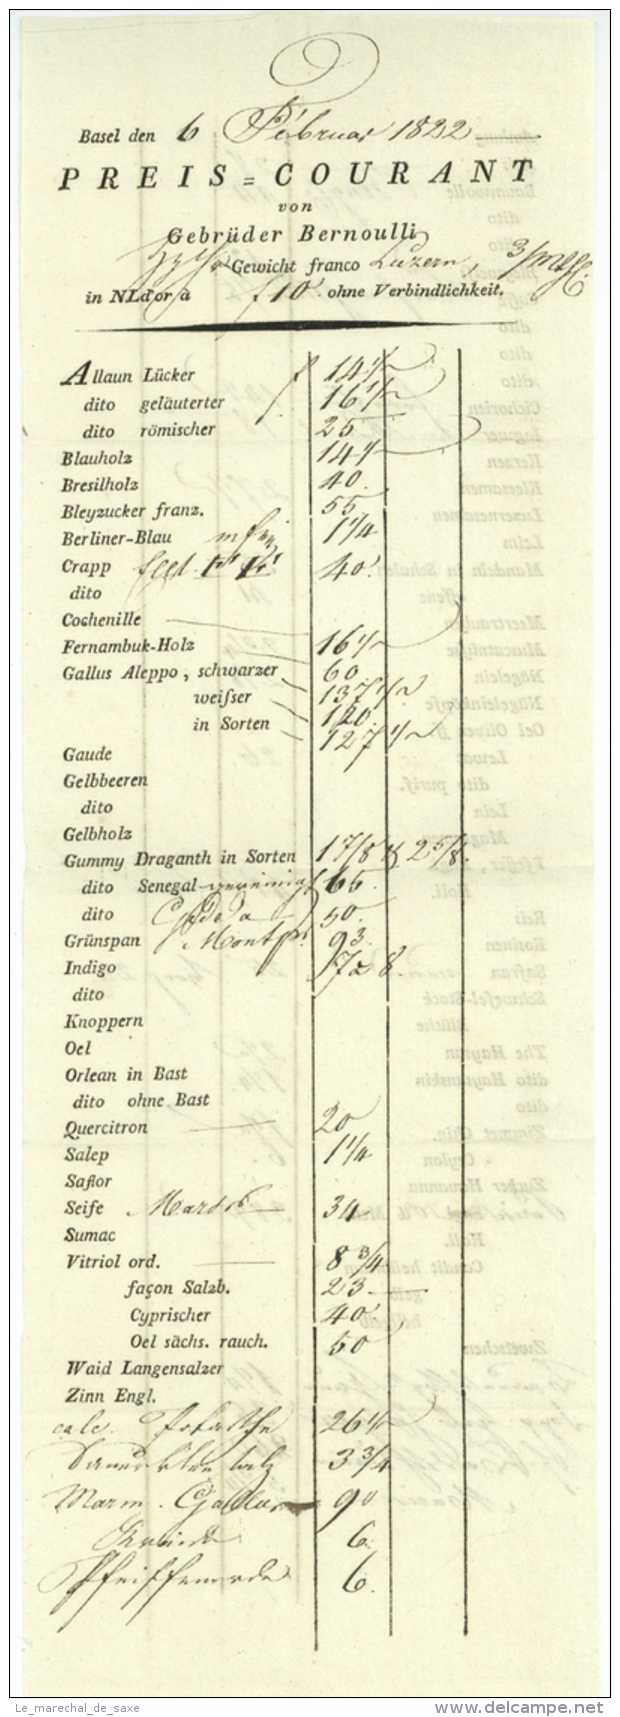 Basel den 6 Februar 1822
PREIS=COURANT
von
Gebrüder Bernoulli
Gewicht franco Luzern, 3/m
in NLd'or à f 10 ohne Verbindlichkeit.
Allaun Lücker f 14 1/2
dito geläuterter 16 1/2
dito römischer 25
Blauholz 14 1/2
Bresilholz 40.
Bleyzucker franz. 55
Berliner-Blau 1 1/4
Crapp 40
dito
Cochenille
Fernambuk-Holz 16 1/2
Gallus Aleppo, schwarzer 60
weisser 137 1/2
in Sorten 120.
127 1/2
Gaude
Gelbbeeren
dito
Gelbholz
Gummy Draganth in Sorten 1 7/8 2 5/8.
dito Senegal 65.
dito 50.
Grünspan Montp. 93.
Indigo 7 a 8.
dito
Knoppern
Oel
Orlean in Bast
dito ohne Bast
Quercitron 20
Salep 1 1/4
Saflor
Seife Mars 34
Sumac
Vitriol ord. 8 3/4
façon Salzb. 23
Cyprischer 40
Oel sächs. rauch. 50
Waid Langensalzer
Zinn Engl.
calc. 26 1/2
3 3/4
Marm. 90
Kreide 6.
Pfeiffenerde 6.
Le_marechal_de_saxe
delcampe.net